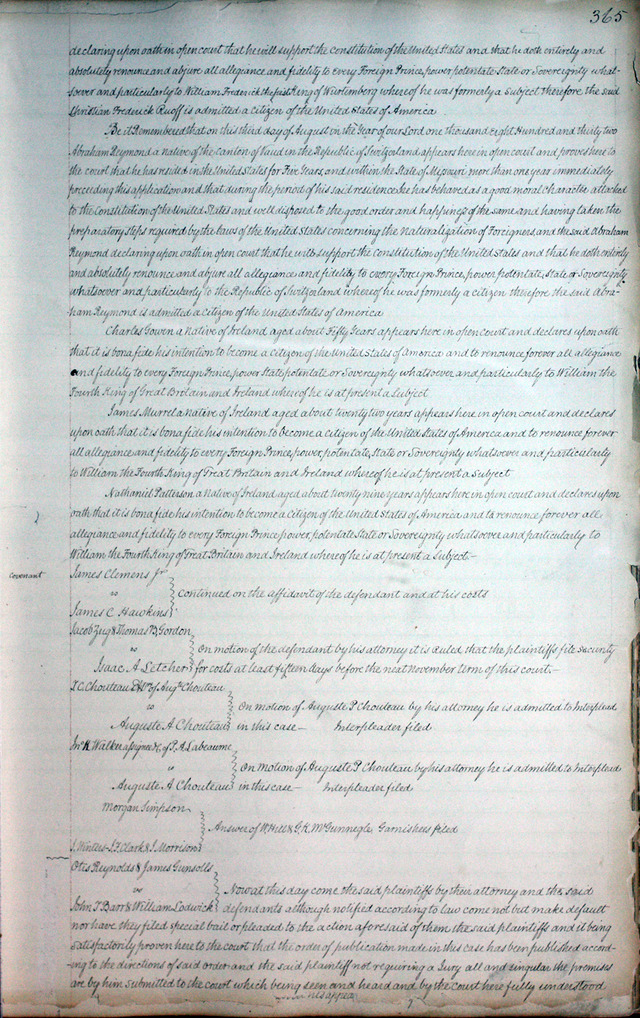 365
declaring upon oath in open court that he will support the constitution of the United States and that he doth entirely and
absolutely renounce and abjure all allegiance and fidelity to every Foreign Prince, power potentate State or Sovereignty what-
soever and particularly to William Frederick the first King of Wurtemberg whereof he was formerly a subject therefore the said
Christian Frederick Ruoff is admitted a citizen of the United States of America
Be it Remembered that on this third day of August in the Year of our Lord one thousand eight Hundred and thirty two
Abraham Reymond a native of the canton of Vaud in the Republic of Switzerland appears here in open court and proves here to
the court that he has resided in the United States for Five Years, and within the State of Missouri more than one year immediately
preceeding this application and that during the period of his said residence he has behaved as a good moral character attached
to the Constitution of the United States and well disposed to the good order and happiness of the same and having taken the
preparatory steps required by the laws of the United States concerning the naturalization of Foreigners and the said Abraham
Reymond declaring upon oath in open court that he will support the constitution of the United States and that he doth entirely
and absolutely renounce and abjure all allegiance and fidelity to every Foreign Prince, power, potentate, State, or Sovereignty
whatsoever and particularly to the Republic of Switzerland whereof he was formerly a citizen therefore the said Abra-
ham Reymond is admitted a citizen of the United States of America
Charles Govern a native of Ireland aged about Fifty Years appears here in open Court and declares upon oath
that it is bona fide his intention to become a citizen of the United States of America and to renounce forever all allegiance
and fidelity to every Foreign Prince, power State potentate or Sovereignty whatsoever and particularly to William the
Fourth King of Great Britain and Ireland whereof he is at present a subject
James Murrel a native of Ireland aged about twenty two years appears here in open court and declares
upon oath that it is bona fide his intention to become a citizen of the United States of America and to renounce forever
all allegiance and fidelity to every Foreign Prince, power, potentate, State or Sovereignty whatsoever and particularly
to William the Fourth King of Great Britain and Ireland whereof he is at present a Subject
Nathaniel Patterson a Native of Ireland aged about twenty nine years appears here in open court and declares upon
oath that it is bona fide his intention to become a citizen of the United States of America and to renounce forever all
allegiance and fidelity to every Foreign Prince, power, potentate State or Sovereignty whatsoever and particularly to
William the Fourth King of Great Britain and Ireland whereof he is at present a Subject—
Covenant
James Clemens Jr
vs
Continued on the affidavit of the defendant and at his costs
James C Hawkins
Jacob Zug & Thomas B Gordon
vs
On motion of the defendant by his attorney it is Ruled that the plaintiffs file Security
Isaac A Letcher for costs at least fifteen days before the next November term of this court.—
P. C. Chouteau of Augte Chouteau
vs
On motion of Auguste P Chouteau by his attorney he is admitted to Interplead
Auguste A Chouteau in this case — Interpleader filed
Jno K Walker assignee &c of P. A. Labeaume
vs
On motion of Auguste P Chouteau by his attorney he is admitted to Interplead
Auguste A Chouteau in this case — Interpleader filed
Morgan Simpson
Answer of & G. K. McGunnegle Garnishees filed
J. Winters - Clark & J. Morrison
Otis Reynolds & James Gunsolls
vs
Now at this day come the said plaintiffs by their attorney and the said
John T Barr & William Lodwick defendants although notified according to law come not but make default
nor have they filed special bail or pleaded to the action aforesaid of them the said plaintiffs and it being
satisfactorily proven here to the court that the order of publication made in this case has been published accord-
ing to the directions of said order and the said plaintiff not requiring a Jury all and singular the premises
are by him submitted to the court which being seen and heard and by the court here fully understood